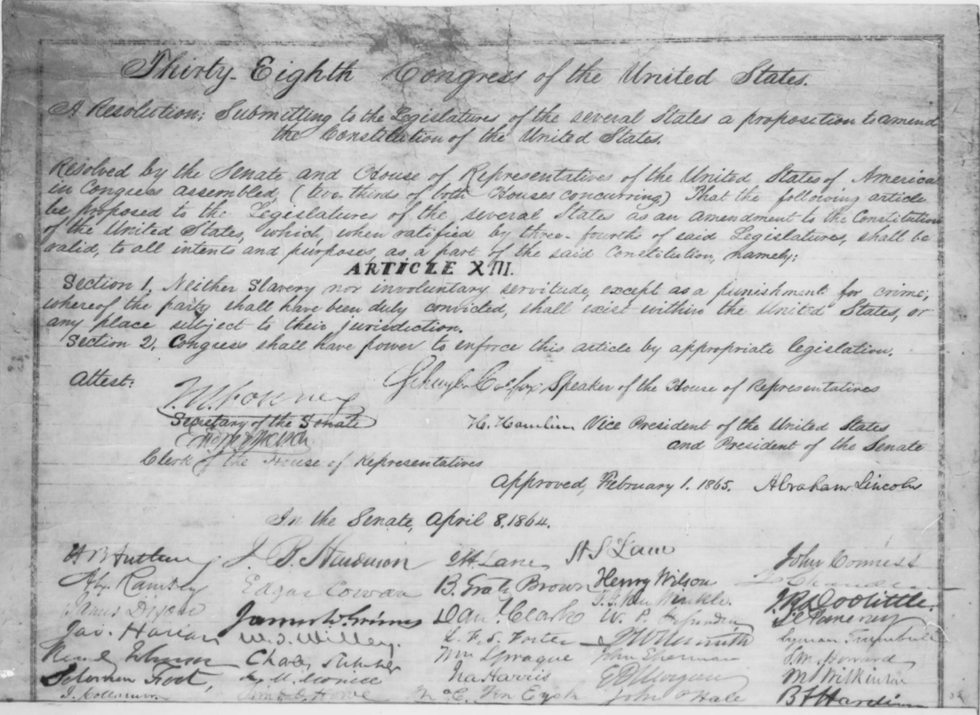 Thirty-Eighth Congress of the United States.
A Resolution; Submitting to the Legislatures of the several States a proposition to amend
the Constitution of the United States.
Resolved by the Senate and House of Representatives of the United States of America
in Congress assembled, (two-thirds of both Houses concurring) That the following article
be proposed to the Legislatures of the several States as an amendment to the Constitution
of the United States, which, when ratified by three-fourths of said Legislatures, shall be
valid, to all intents and purposes, as a part of the said Constitution, namely;
ARTICLE XIII.
Section 1, Neither Slavery nor involuntary servitude, except as a punishment for crime;
whereof the party shall have been duly convicted, shall exist within the United States, or
any place subject to their jurisdiction.
Section 2, Congress shall have power to enforce this article by appropriate legislation.
Attest:
Schuyler Colfax Speaker of the House of Representatives
J. W. Forney
Secretary of the Senate
H. Hamlin Vice President of the United States
and President of the Senate
Clerk of the House of Representatives
Approved, February 1. 1865. Abraham Lincoln
In the Senate, April 8, 1864.
J. B. Henderson J H Lane H S Lane John Conness
Alex Ramsey Edgar Cowan B. Gratz Brown Henry Wilson
James Dixon James W. Grimes Dan'l Clark P. G. Van Winkle J. R. Doolittle
Jas. Harlan W. T. Willey L. F. S. Foster W. P. Fessenden S. C. Pomeroy
Charles Sumner Wm Sprague J W Nesmith Lyman Trumbull
Solomon Foot, Ira Harris John Sherman J. M. Howard
J. Collamer Timo. O. Howe J. C. Ten Eyck E D Morgan M S Wilkinson
John P Hale B F Harding